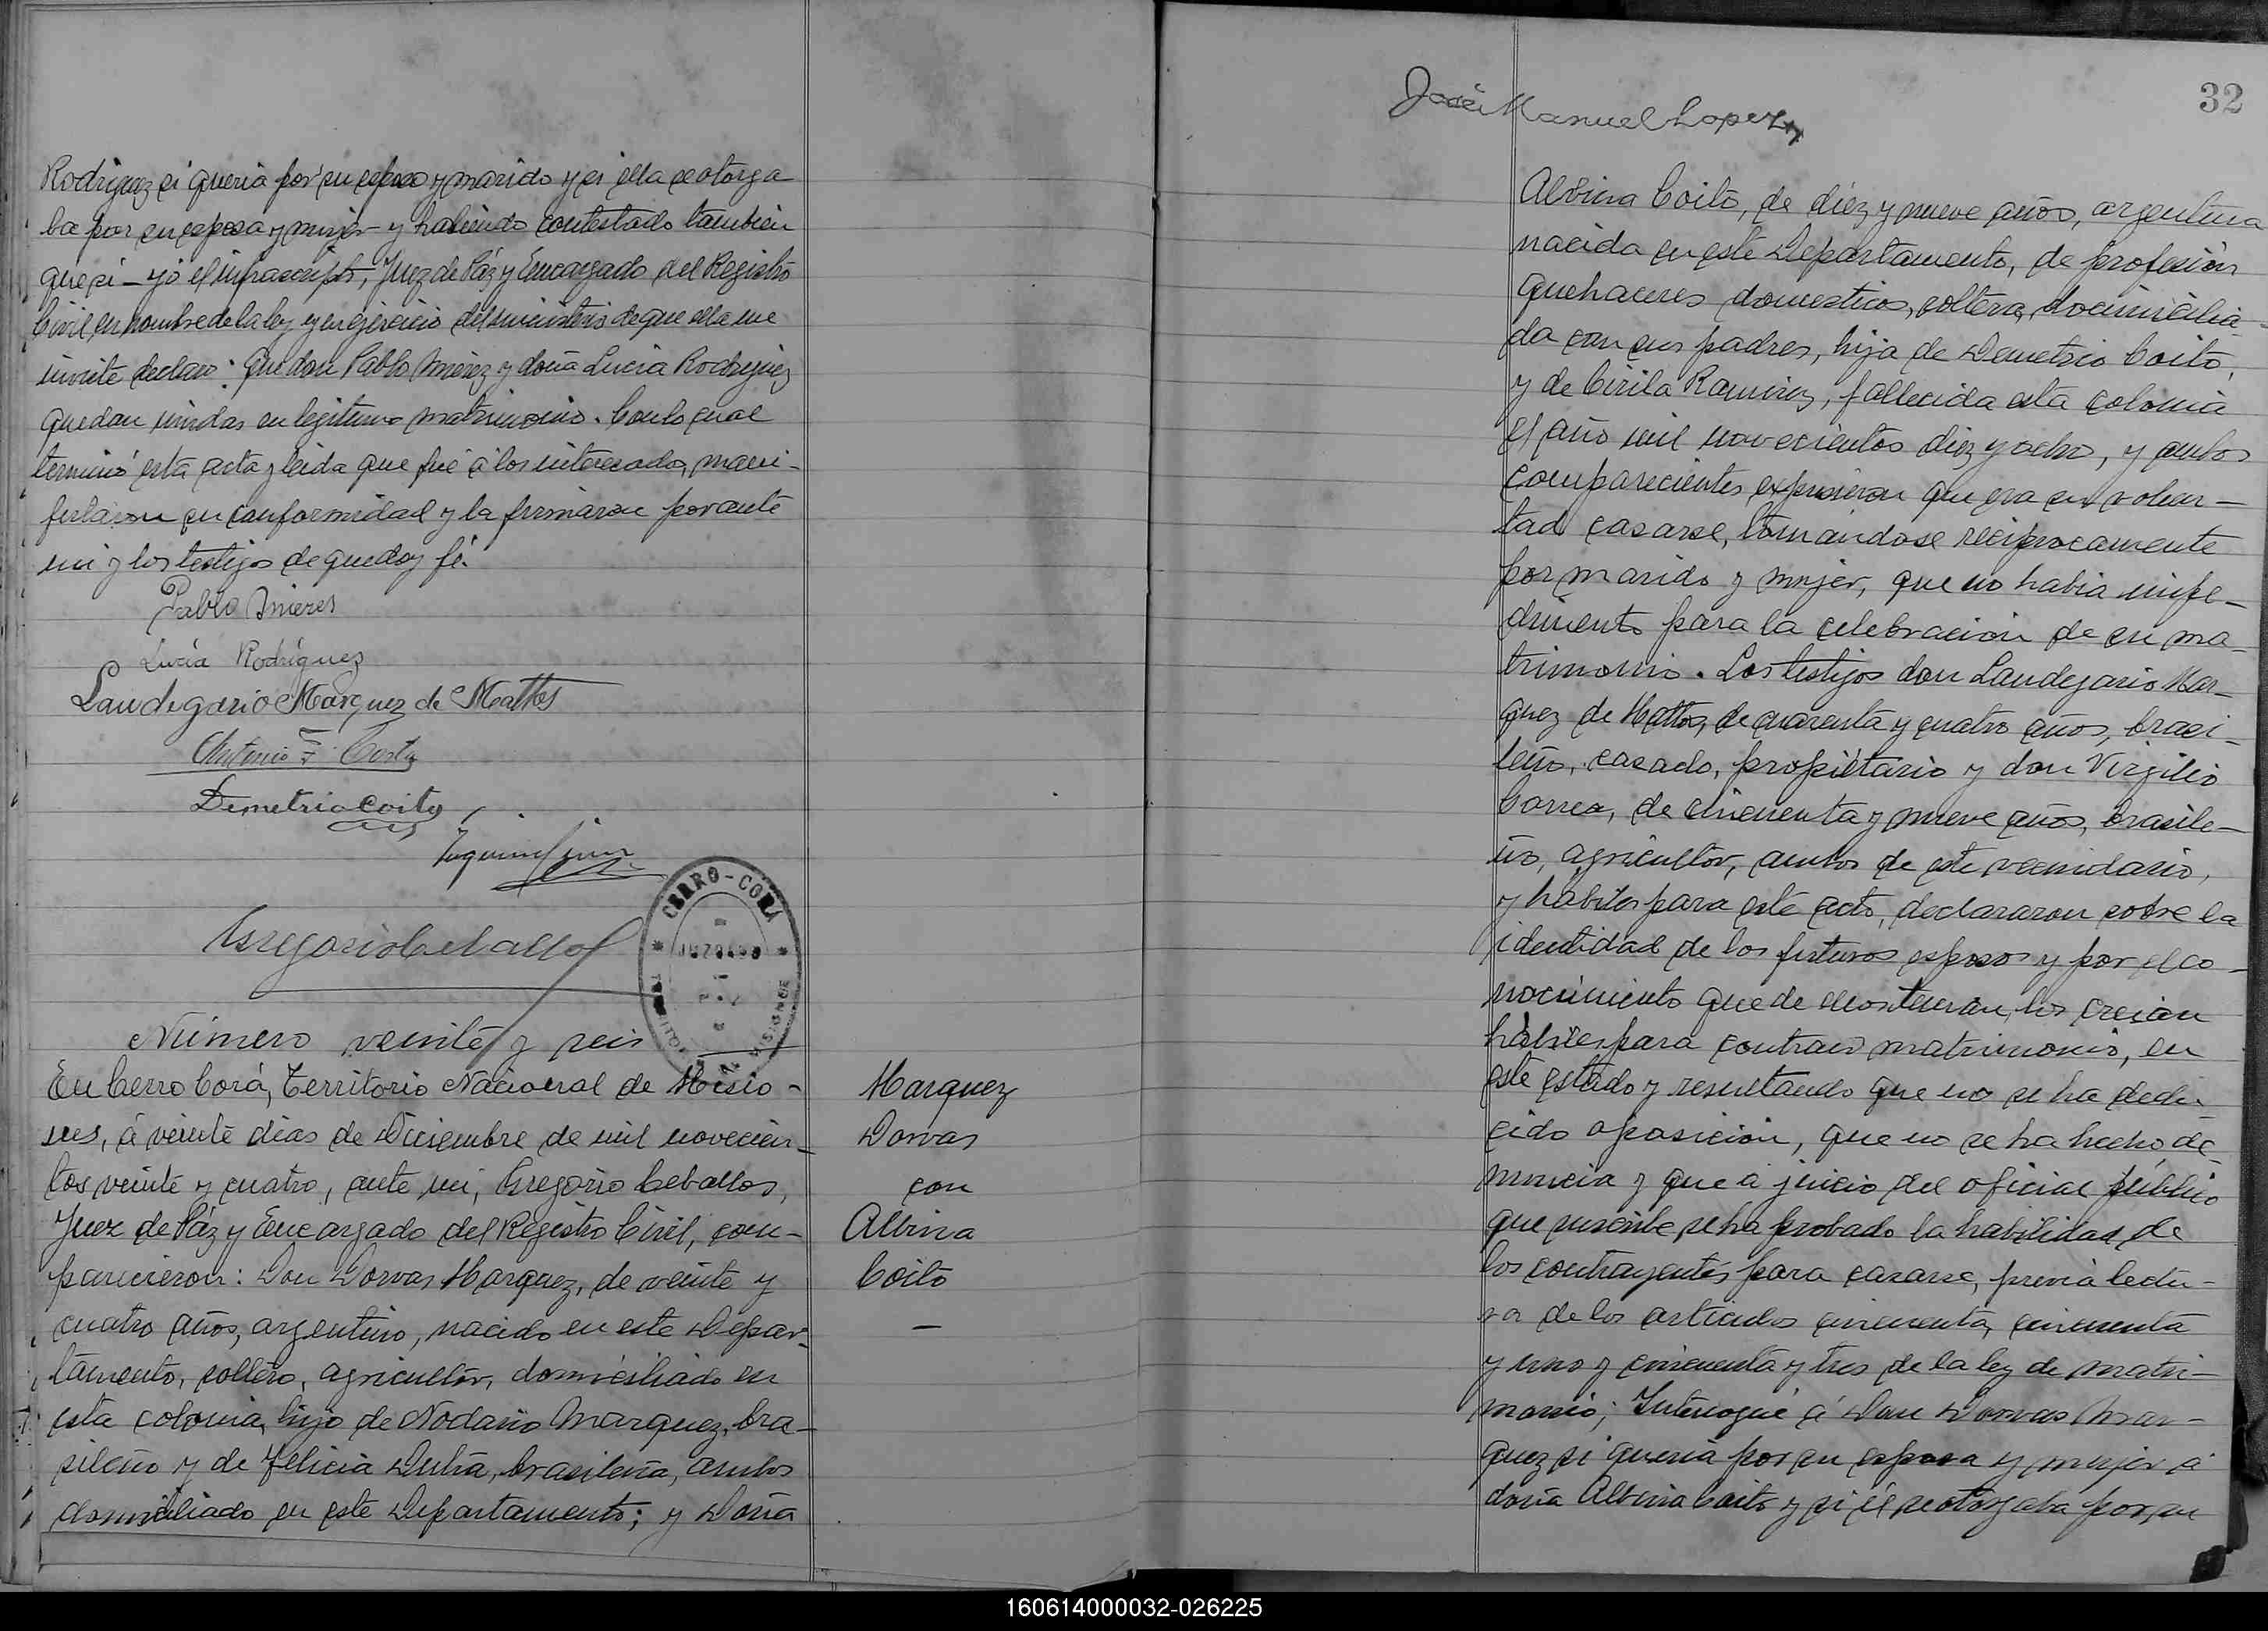 Rodriguez si queria por su esposo y marido y si ella se otorga
ba por su esposa y mujer y habiendo contestado tambien
que si – yó el infrascripto, Juez de Páz y Encargado del Registro
Civil, en nombre de la ley y en ejercicio del ministerio de que ella me
inviste declaro: que don Pablo y doña Lucia Rodriguez
quedan unidos en legitimo matrimonio. Con lo cual
terminó esta acta y leida que fué á los interesados, mani-
festaron su conformidad y la firmaron por ante
mi y los testigos de que doy fé.
Pablo
Lucia Rodriguez
Laudegario Marquez de Mattos
Antonio F. Costa
Demetrio Coito
Gregorio Ceballos
CERRO-CORÁ
JUZGADO
Número veinte y seis
En Cerro Corá, Territorio Nacional de Misio-
nes, á veinte dias de Diciembre de mil novecien-
tos veinte y cuatro, ante mi, Gregorio Ceballos,
Juez de Páz y Encargado del Registro Civil, com-
parecieron: Don Dorvas Marquez, de veinte y
cuatro años, argentino, nacido en este Depar-
tamento, soltero, agricultor, domiciliado en
esta colonia, hijo de Nodario Marquez, bra-
sileño y de Felicia Dutra, brasileña, ambos
domiciliado en este Departamento; y Doña
Marquez
Dorvas
con
Albina
Coito
—
José Manuel Lopez
32
Albina Coito, de diez y nueve años, argentina
nacida en este Departamento, de profesión
quehaceres domesticos, soltera, domicilia-
da con sus padres, hija de Demetrio Coito,
y de Cirila Ramirez, fallecida esta colonia
el año mil novecientos diez y ocho, y ambos
comparecientes expusieron que era su volun-
tad casarse, tomandose reciprocamente
por marido y mujer, que no habia impe-
dimento para la celebracion de su ma-
trimonio. Los testigos don Laudegario Mar-
quez de Mattos, de cuarenta y cuatro años, brasi-
leño, casado, propiétario y don Virgilio
Correa, de cincuenta y nueve años, brasile-
ño, agricultor, ambos de este vecindario,
y habiles para este acto, declararon sobre la
identidad de los futuros esposos y por el co-
nocimiento que de ellos tenian, los creian
habiles para contraer matrimonio, en
este estado y resultando que no se ha dedu-
cido oposicion, que no se ha hecho de-
nuncia y que á juicio del oficial público
que suscribe se ha probado la habilidad de
los contrayentes para casarse, previa lectu-
ra de los articulos cincuenta, cincuenta
y uno y cincuenta y tres de la ley de matri-
monio; Interrogué á Don Dorvas Mar-
quez si queria por su esposa y mujer á
doña Albina Coito y si él se otorgaba por su
160614000032-026225